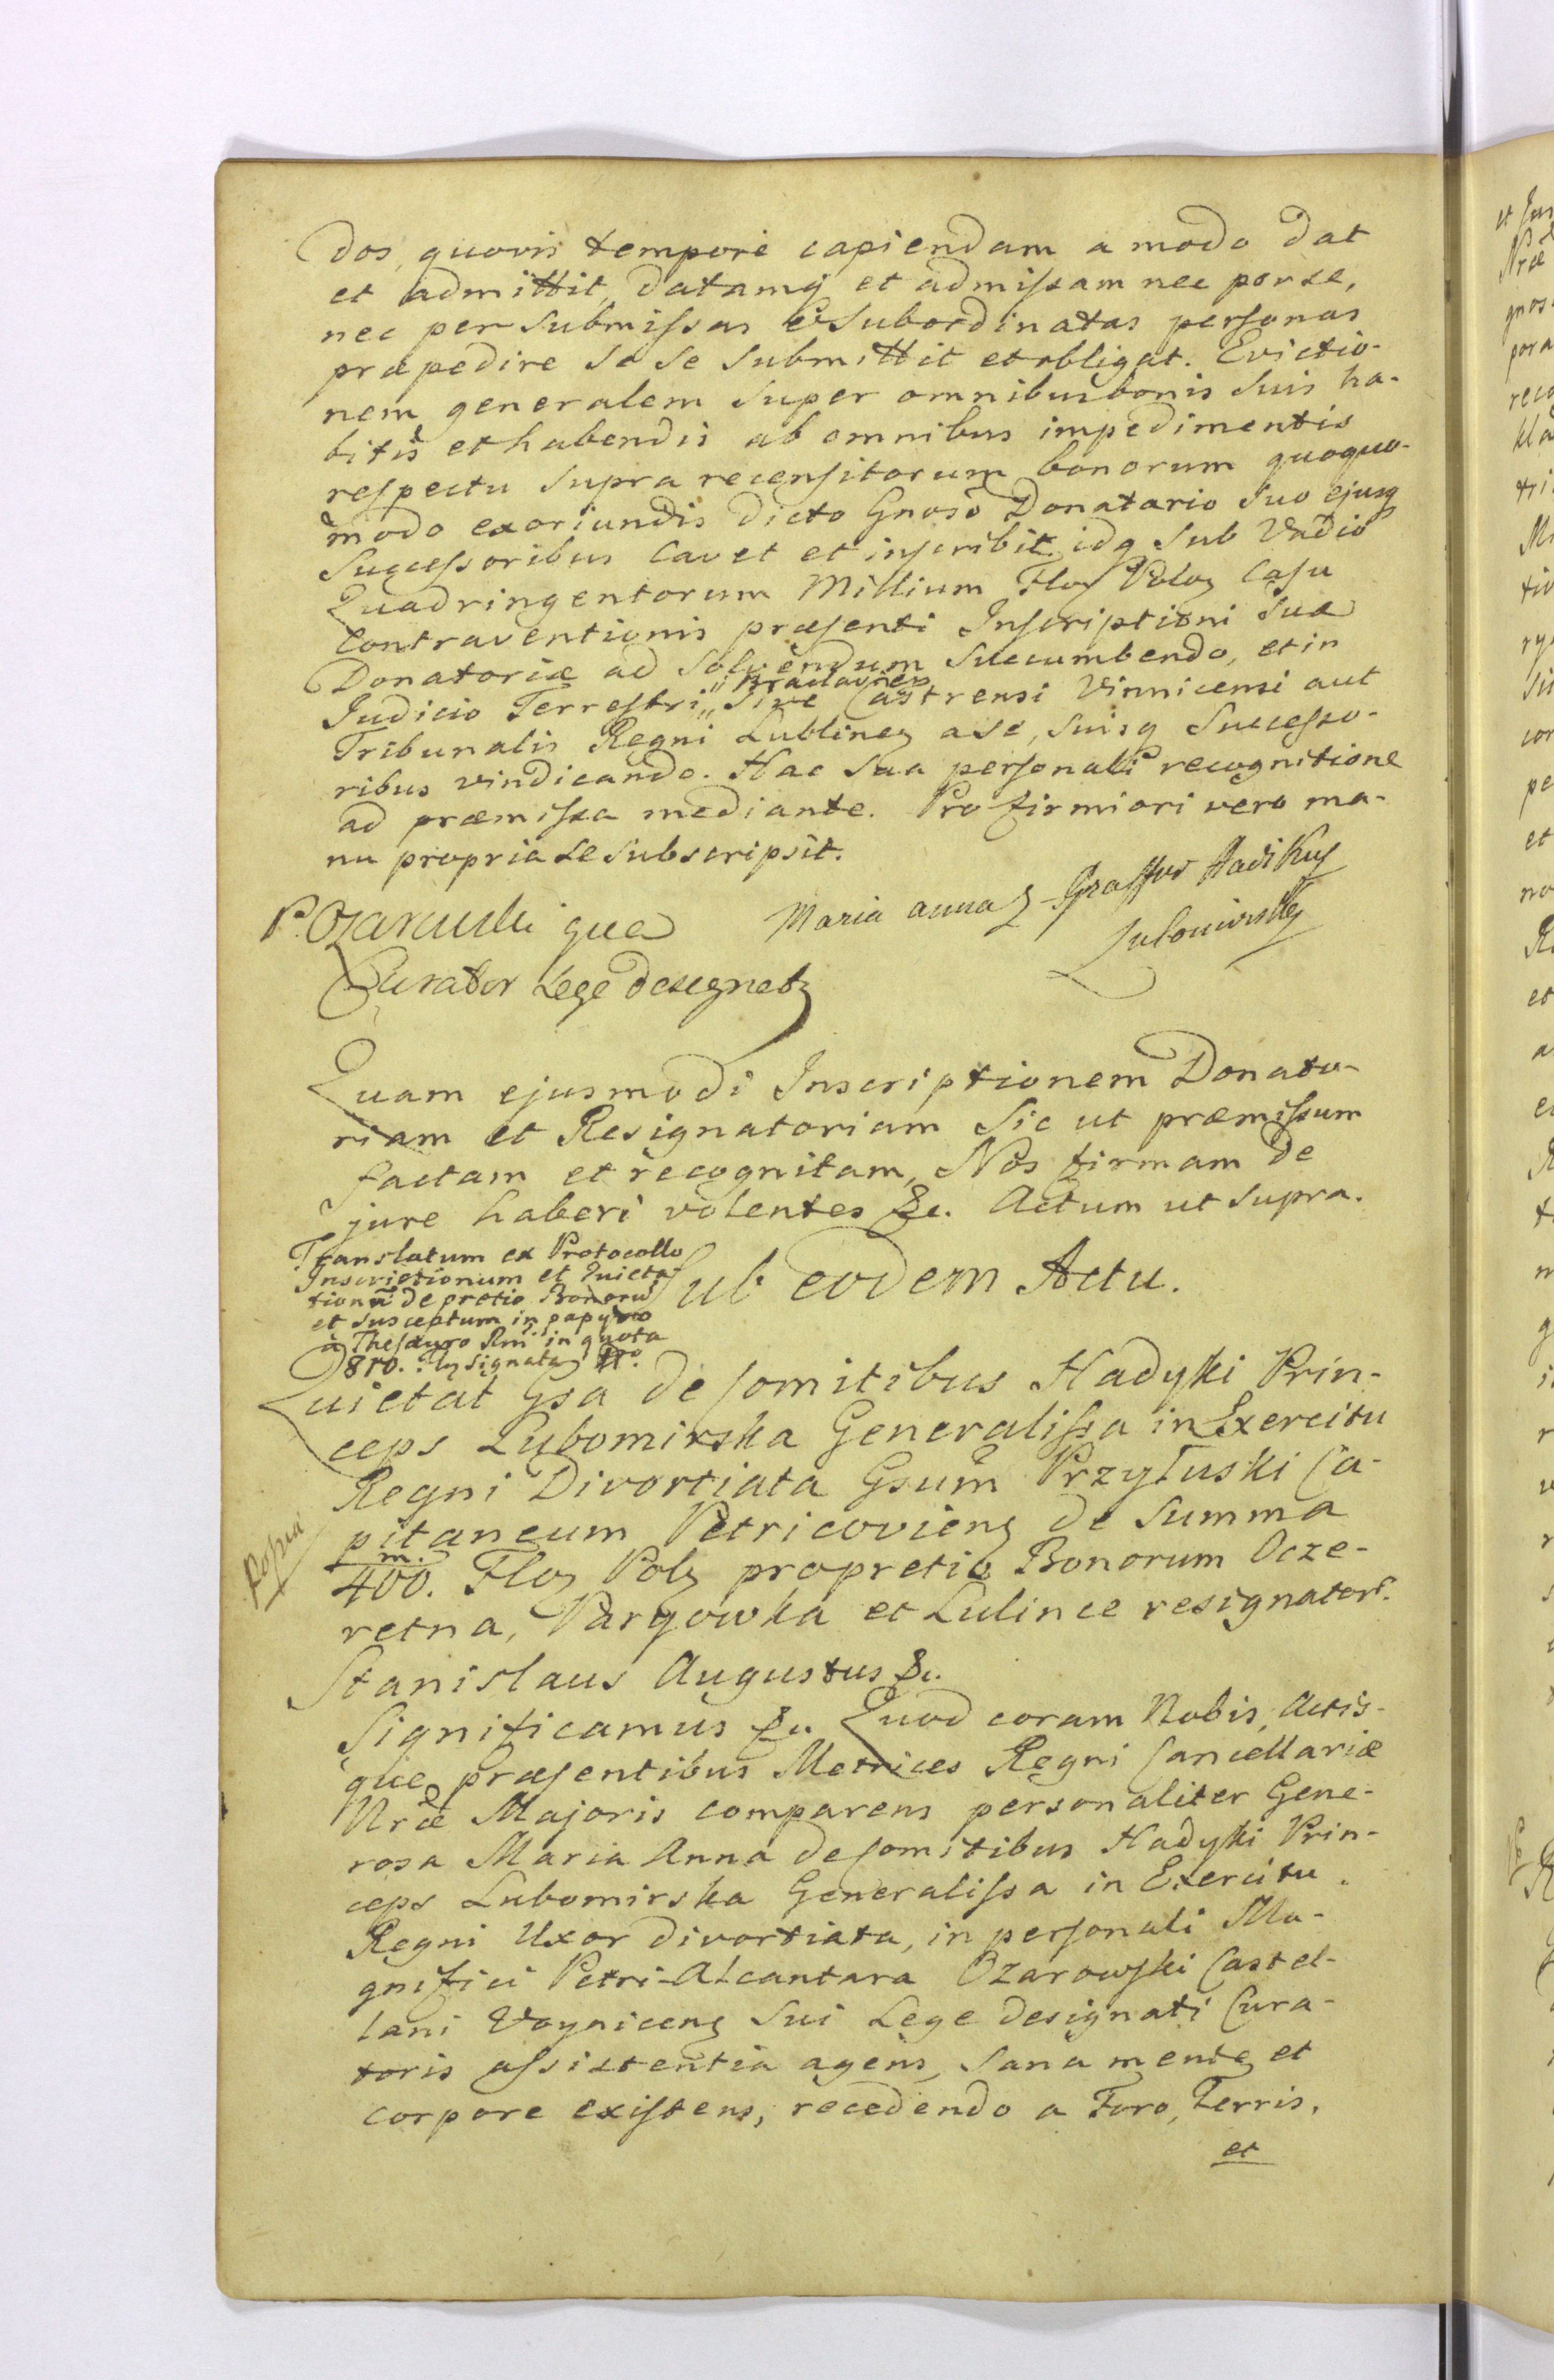 dos, quovis tempore capiendam a modo dat
et admittit, datamq et admissam nec per se,
nec per submissas & subordinatas personas
præpedire se se submittit et obligat. Evictio-
nem generalem super omnibus bonis suis ha-
bitis et habendis ab omnibus impedimentis
respectu supra recensitorum bonorum quoquo-
modo exoriundis dicto Gnoso Donatario suo ejusq
Successoribus cavet et inscribit idq sub Vadio
Quadringentorum Millium Flor Polor casu
contraventionis præsenti Inscriptioni suæ
Donatoriæ ad solvendum succumbendo, et in
Judicio Terrestri " Braclavien " sive Castrensi Vinnicensi aut
Tribunalis Regni Lublinen a se, suisq Successo-
ribus vindicando. Hac sua personali recognitione
ad præmissa mediante. Pro firmiori vero ma-
nu propria se subscripsit.
P. Ozarowski qua
Maria anna
Lubomirska
Curator Lege
Quam ejusmodi Inscriptionem Donato-
riam et Resignatoriam sic ut præmissum
factam et recognitam, Nos firmam de
jure haberi volentes &c. Actum ut supra.
Translatum ex Protocollo
Inscriptionum et Quieta
tionũ de pretio Bonorũ
et susceptum in papyro
à Thesauro Rni in quota
810. signata
Sub eodem Actu.
Quietat Gsa de Comitibus Hadyski Prin-
ceps Lubomirska Generalissa in Exercitu
Regni Divortiata Gsum Przyłuski Ca-
pitaneum Petricovien de Summa
400.m Flor Pol pro pretio Bonorum Ocze-
retna, Pargowka et Lulince resignator.
Stanislaus Augustus &c.
Significamus &c. Quod coram Nobis, Actis-
que præsentibus Metrices Regni Cancellariæ
Nræ Majoris comparens personaliter Gene-
rosa Maria Anna de Comitibus Hadyski Prin-
ceps Lubomirska Generalissa in Exercitu
Regni Uxor divortiata, in personali Ma-
gnifici Petri Alcantara Ozarowski Castel-
lani Woynicen sui Lege designati Cura-
toris assistentia agens, sana mente et
corpore existens, recedendo a Foro, Terris,
et